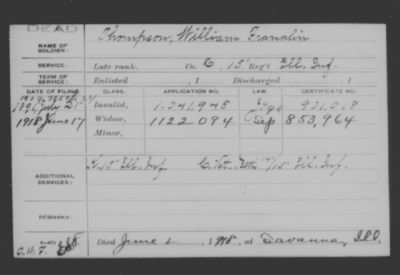 DEAD
NAME OF SOLDIER: Thompson, William Franklin
SERVICE: Late rank, Co. C, 15 Reg't Ill. Inf.
TERM OF SERVICE: Enlisted , 1 Discharged , 1
DATE OF FILING. CLASS. APPLICATION NO. LAW. CERTIFICATE NO.
1891, July Invalid, 1.041.945
1918 June 17 Widow, 1122.094 853,964
Minor,
ADDITIONAL SERVICES: Ill. Inf. 15 Ill. Inf.
REMARKS:
Died June 2, 1918, at Savanna, Ill.